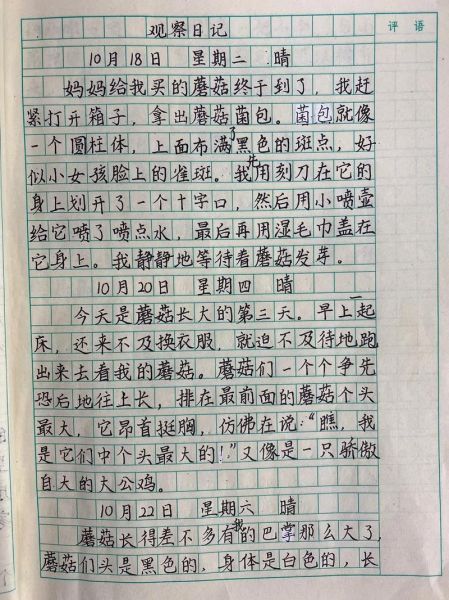 观察日记
评 语
10月18日 星期二 晴
妈妈给我买的蘑菇终于到了，我赶
紧打开箱子，拿出蘑菇菌包。菌包就像
一个圆柱体，上面布满了黑色的斑点，好
似小女孩脸上的雀斑。我先用刻刀在它的
身上划开了一个十字口，然后用小喷壶
给它喷了喷点水，最后再用湿毛巾盖在
它身上。我静静地等待着蘑菇发芽。
10月20日 星期四 晴
今天是蘑菇长大的第三天。早上一起
床，还来不及换衣服，就迫不及待地跑
出来去看我的蘑菇。蘑菇们一个个争先
恐后地往上长，排在最前面的蘑菇个头
最大，它昂首挺胸，仿佛在说：“瞧，我
是它们中个头最大的！”又像是一只骄傲
自大的大公鸡。
10月22日 星期六 晴
蘑菇长得差不多有我的巴掌那么大了，
蘑菇们头是黑色的，身体是白色的，长